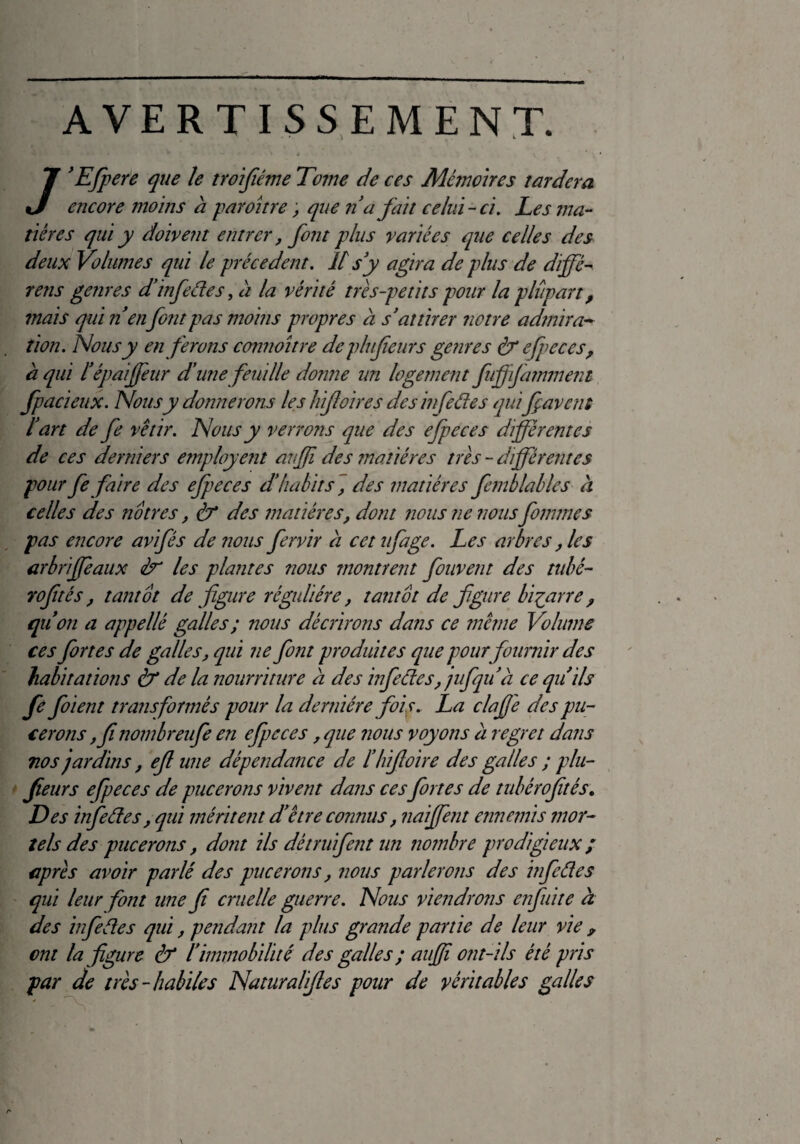 AVERTISSEMENT.
J'Eſpere que le troiſiéme Tome de ces Mémoires tardera
encore moins à paroître, que n'a fait celui-ci. Les ma-
tiéres qui y doivent entrer, ſont plus variées que celles des
deux Volumes qui le précedent. Il s'y agira de plus de diffé-
rens genres d'inſectes, à la vérité très-petits pour la plûpart,
mais qui n'en ſont pas moins propres à s'attirer notre admira-
tion. Nous y en ferons connoître de pluſieurs genres & eſpeces,
à qui l'épaiſſeur d'une feuille donne un logement ſuffiſamment
ſpacieux. Nous y donnerons les hiſtoires des inſectes qui ſçavent
l'art de ſe vêtir. Nous y verrons que des eſpeces différentes
de ces derniers employent auſſi des matiéres très-différentes
pour ſe faire des eſpeces d'habits, des matiéres ſemblables à
celles des nôtres, & des matiéres, dont nous ne nous ſommes
pas encore aviſés de nous ſervir à cet uſage. Les arbres, les
arbriſſeaux & les plantes nous montrent ſouvent des tubé-
roſités, tantôt de figure réguliére, tantôt de figure bizarre,
qu'on a appellé galles; nous décrirons dans ce même Volume
ces ſortes de galles, qui ne ſont produites que pour fournir des
habitations & de la nourriture à des inſectes, juſqu'à ce qu'ils
ſe ſoient transformés pour la derniére fois. La claſſe des pu-
cerons, ſi nombreuſe en eſpeces, que nous voyons à regret dans
nos jardins, eſt une dépendance de l'hiſtoire des galles; plu-
ſieurs eſpeces de pucerons vivent dans ces ſortes de tubéroſités.
Des inſectes, qui méritent d'être connus, naiſſent ennemis mor-
tels des pucerons, dont ils détruiſent un nombre prodigieux;
après avoir parlé des pucerons, nous parlerons des inſectes
qui leur font une ſi cruelle guerre. Nous viendrons enſuite à
des inſectes qui, pendant la plus grande partie de leur vie,
ont la figure & l'immobilité des galles; auſſi ont-ils été pris
par de très-habiles Naturaliſtes pour de véritables galles